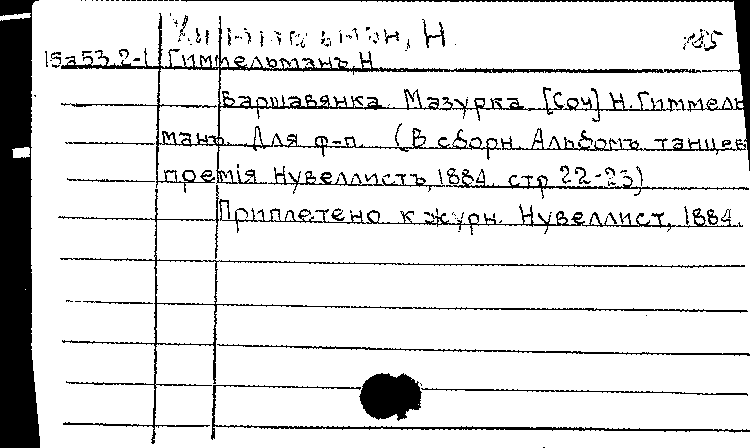 Н. 185
15а53.2-1 Гиммельманъ, Н
Варшавянка Мазурка [Соч] Н. Гиммель
манъ. Для ф-п. (В сборн. Альбомъ танцев
премія Нувеллистъ, 1884. стр 22-23)
Приплетено к журн. Нувеллист, 1884.